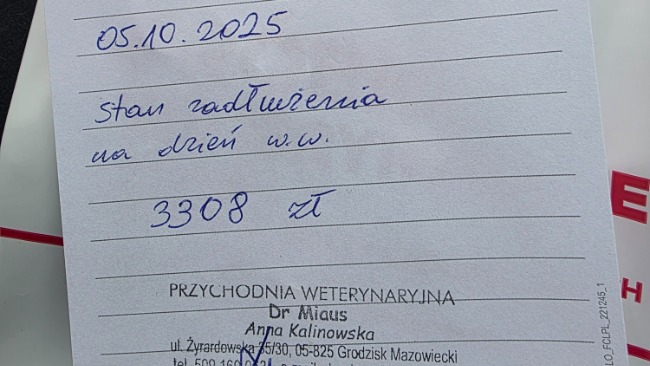 05.10.2025
stan zadłużenia
na dzień w.w.
3308 zł
PRZYCHODNIA WETERYNARYJNA
Dr Miaus
Anna Kalinowska
ul. Żyrardowska 35/30, 05-825 Grodzisk Mazowiecki
tel. 509 160
LO_FCLPL_221245_1
E
H